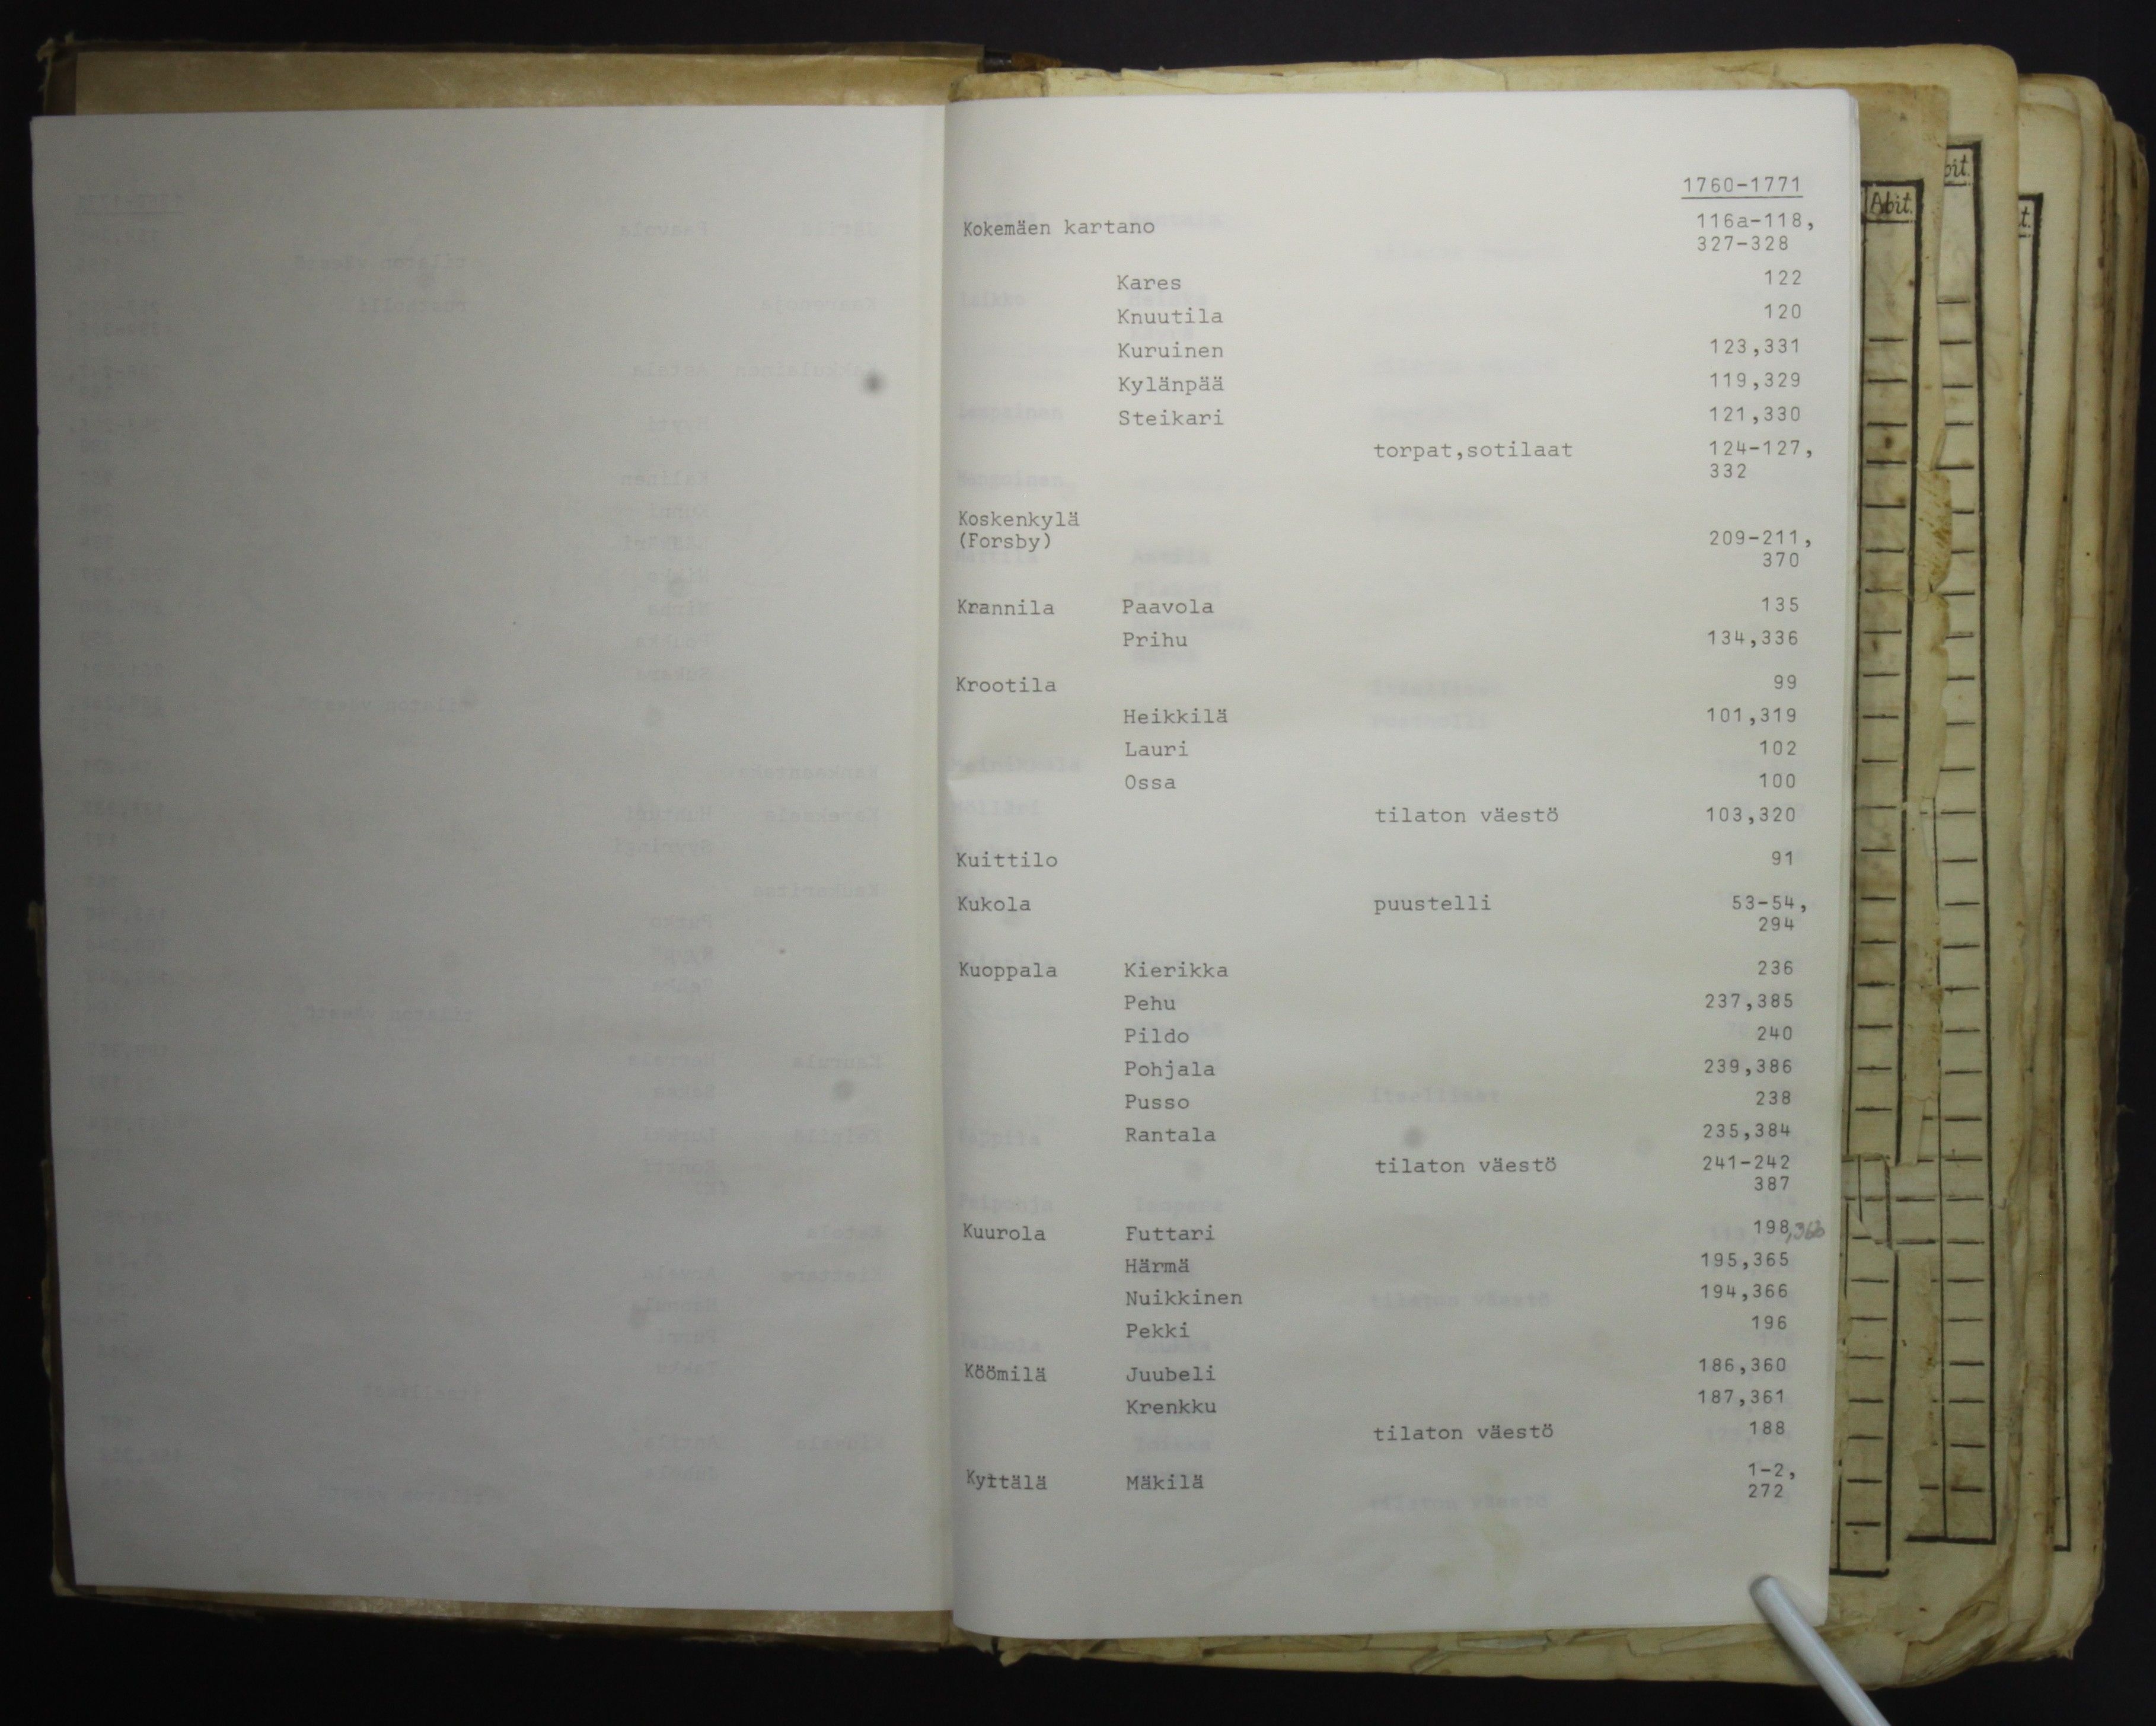 1760-1771
Kokemäen kartano 116a-118,
327-328
Kares 122
Knuutila 120
Kuruinen 123,331
Kylänpää 119,329
Steikari 121,330
torpat,sotilaat 124-127,
332
Koskenkylä
(Forsby) 209-211,
370
Krannila Paavola 135
Prihu 134,336
Krootila 99
Heikkilä 101,319
Lauri 102
Ossa 100
tilaton väestö 103,320
Kuittilo 91
Kukola puustelli 53-54,
294
Kuoppala Kierikka 236
Pehu 237,385
Pildo 240
Pohjala 239,386
Pusso 238
Rantala 235,384
tilaton väestö 241-242
387
Kuurola Futtari 198
Härmä 195,365
Nuikkinen 194,366
Pekki 196
Köömilä Juubeli 186,360
Krenkku 187,361
tilaton väestö 188
Kyttälä Mäkilä 1-2,
272
Abit.